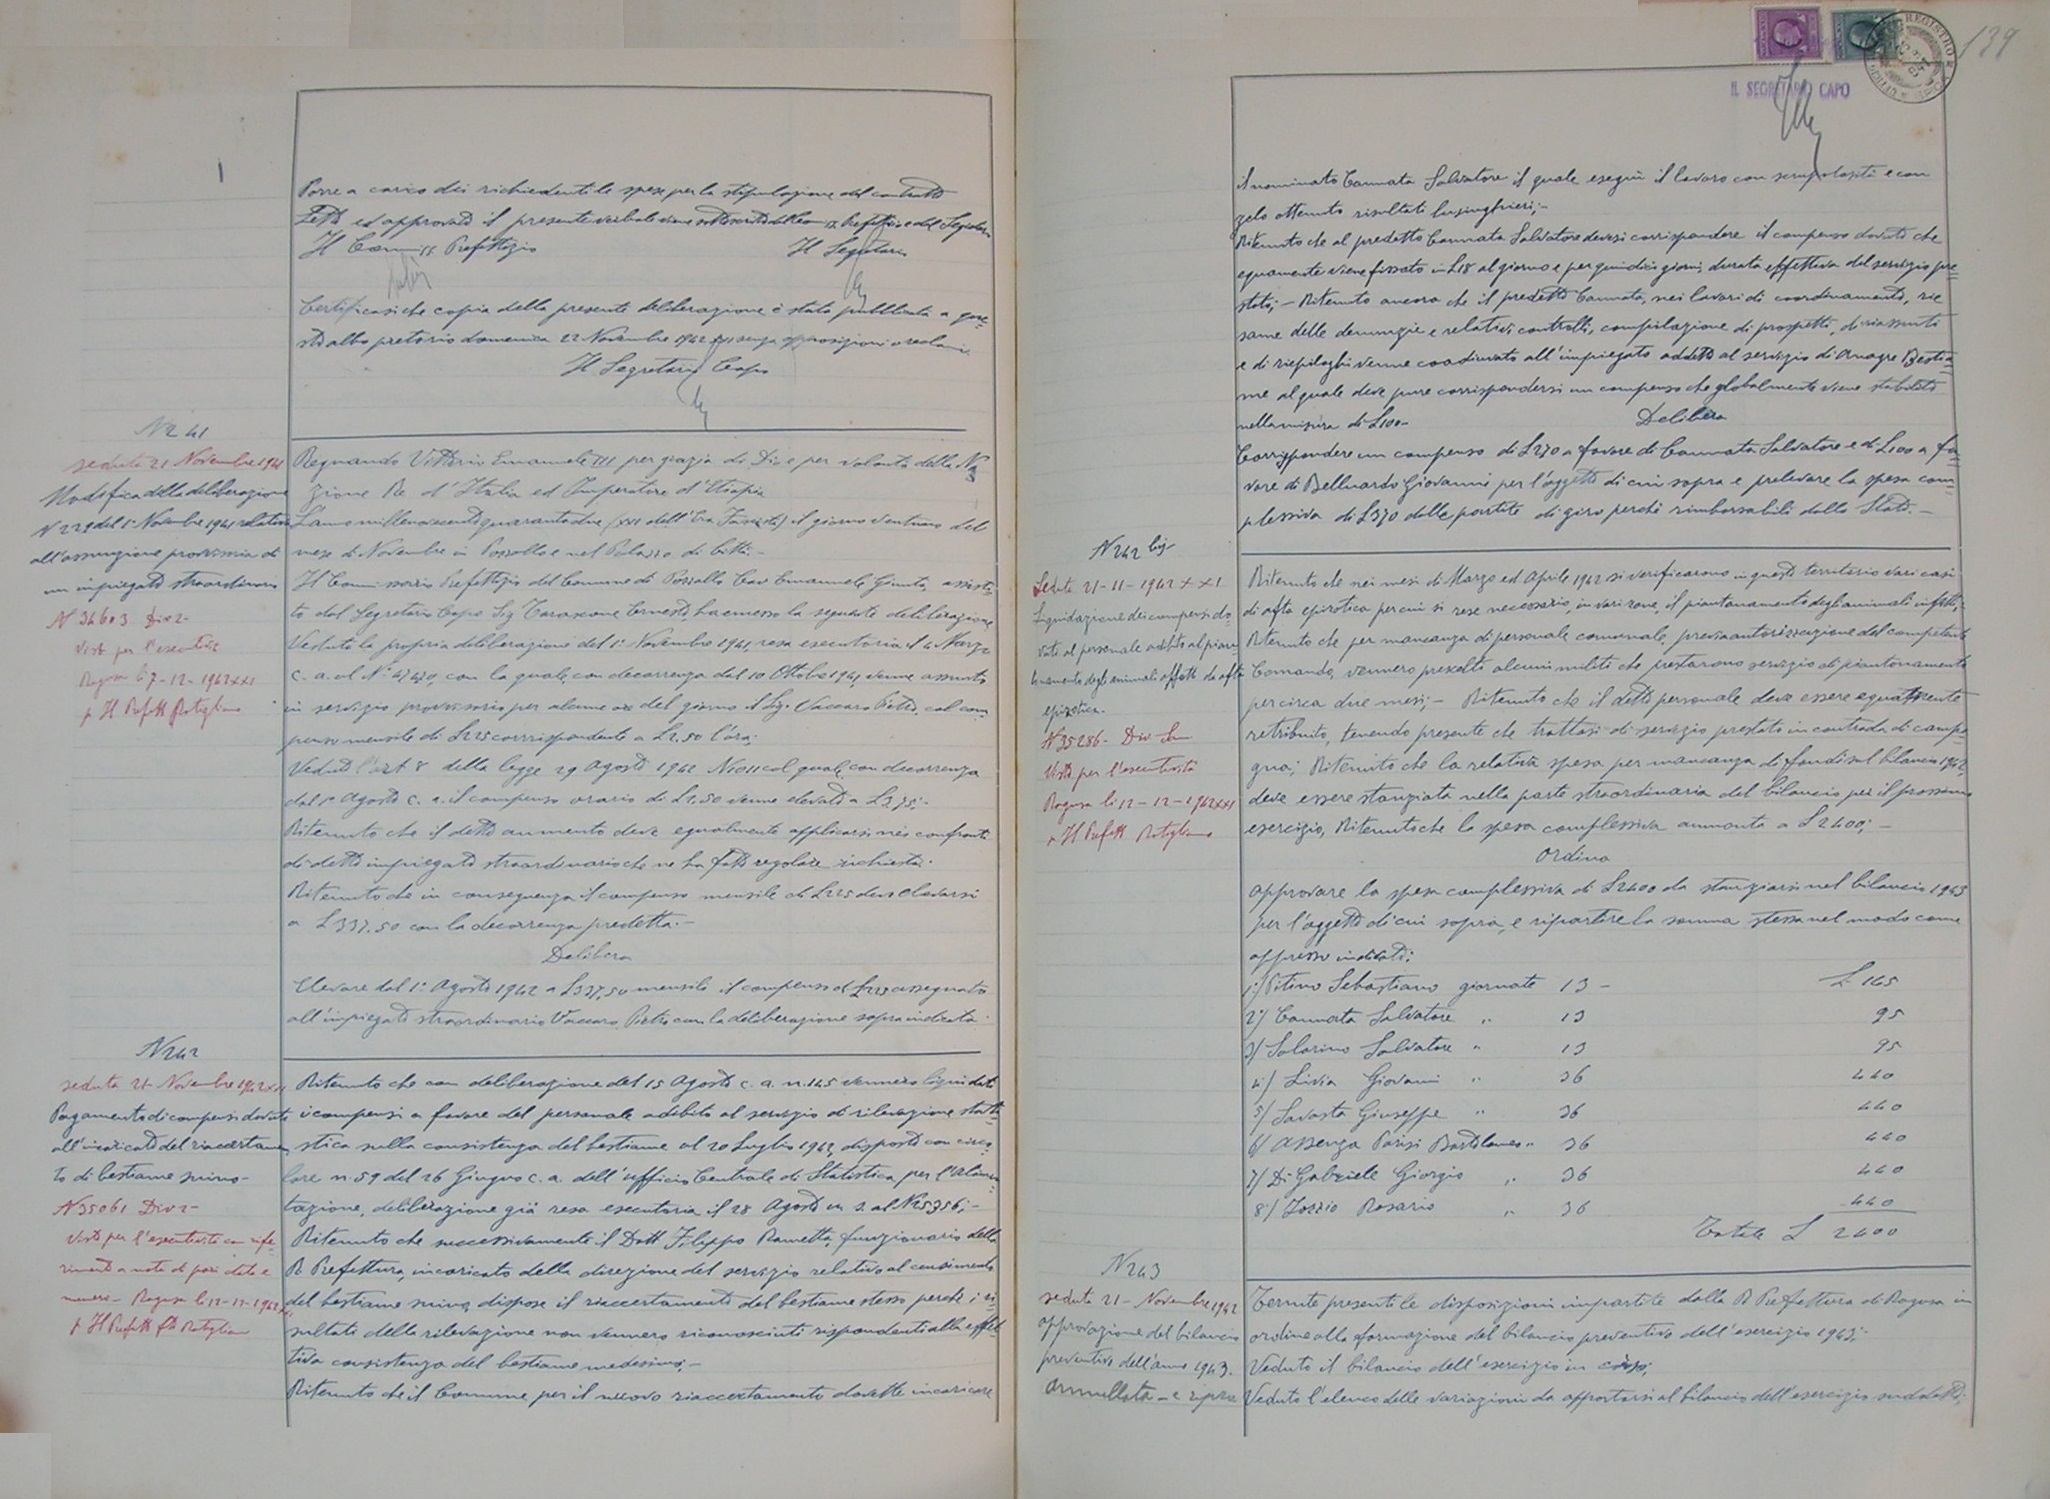 Porre a carico dei richiedenti le spese per la stipulazione del contratto
Letto ed approvato il presente verbale viene sottoscritto dal Com. Prefettizio e dal Segretario
Il Commiss Prefettizio Il Segretario
Certificasi che copia della presente deliberazione è stata pubblicata a que=
sto albo pretorio domenica 22 Novembre 1942 XXI senza opposizioni o reclami.
Il Segretario Capo
N 241
seduta 21 Novembre 1942
Modifica della deliberazione
N 229 del 1° Novembre 1941 relativa
all'assunzione provvisoria di
un impiegato straordinario
N 34603 Div 2-
Visto per l'esecutività
Ragusa li 7-12-1942 XXI
p Il Prefetto Rotigliano
Regnando Vittorio Emanuele III per grazia di Dio e per volontà della Na
zione Re d'Italia ed Imperatore d'Etiopia
L'anno millenovecentoquarantadue (XXI dell'Era Fascista) il giorno ventuno del
mese di Novembre in Pozzallo e nel Palazzo di Città.-
Il Commissario Prefettizio del Comune di Pozzallo Cav Emanuele Giunta, assisti=
to dal Segretario Capo Sig Tarascone Ernesto, ha emesso la seguente deliberazione
Veduta la propria deliberazione del 1° Novembre 1941, resa esecutoria il 4 Marzo
c. a. al N° 47470, con la quale, con decorrenza dal 10 Ottobre 1941, venne assunto
in servizio provvisorio per alcune ore del giorno il Sig. Vaccaro Pietro, col com=
penso mensile di £ 225 corrispondente a £ 2.50 l'ora;
Veduto l'art 8 della legge 29 Agosto 1942 N 1011 col quale, con decorrenza
dal 1° Agosto c. a. il compenso orario di £ 2.50 venne elevato a £ 3,75;-
Ritenuto che il detto aumento deve egualmente applicarsi nei confronti
di detto impiegato straordinario che ne ha fatto regolare richiesta.
Ritenuto che in conseguenza il compenso mensile di £ 225 deve elevarsi
a £ 337.50 con la decorrenza predetta.-
Delibera
Elevare dal 1° Agosto 1942 a £ 337,50 mensili il compenso di £ 225 assegnato
all'impiegato straordinario Vaccaro Pietro con la deliberazione sopraindicata.
N 242
seduta 21 Novembre 1942 XXI
Pagamento di compensi dovuti
all'incaricato del riaccertamen
to di bestiame suino-
N 35061 Div 2-
Visto per l'esecutività con rife=
rimento a nota di pari data e
numero- Ragusa li 12-12-1942 XXI
p Il Prefetto fto Rotigliano
Ritenuto che con deliberazione del 15 Agosto c. a. n. 145 vennero liquidati
i compensi a favore del personale adibito al servizio di rilevazione stati=
stica sulla consistenza del bestiame al 20 Luglio 1942, disposto con circo=
lare n. 59 del 26 Giugno c. a. dell'Ufficio Centrale di Statistica per l'Alimen=
tazione, deliberazione già resa esecutoria il 28 Agosto u. s. al N 25356;-
Ritenuto che successivamente il Dott Filippo Rametta, funzionario della
R Prefettura, incaricato della direzione del servizio relativo al censimento
del bestiame suino, dispose il riaccertamento del bestiame stesso perchè i ri=
sultati della rilevazione non vennero riconosciuti rispondenti alla effet=
tiva consistenza del bestiame medesimo;-
Ritenuto che il Comune per il nuovo riaccertamento dovette incaricare
139
IL SEGRETARIO CAPO
il nominato Cannata Salvatore il quale eseguì il lavoro con scrupolosità e con
zelo ottenuto risultati lusinghieri;-
Ritenuto che al predetto Cannata Salvatore devesi corrispondere il compenso dovuto che
equamente viene fissato in £ 18 al giorno e per quindici giorni, durata effettiva del servizio pre=
stato;- Ritenuto ancora che il predetto Cannata, nei lavori di coordinamento, rie
same delle denunzie e relativi controlli, compilazione di prospetti, di riassunti
e di riepiloghi venne coadiuvato all'impiegato addetto al servizio di Anagre Bestia=
me al quale deve pure corrispondersi un compenso che globalmente viene stabilito
nella misura di £ 100- Delibera
Corrispondere un compenso di £ 270 a favore di Cannata Salvatore e di £ 100 a fa=
vore di Belluardo Giovanni per l'oggetto di cui sopra e prelevare la spesa com=
plessiva di £ 370 dalle partite di giro perchè rimborsabili dallo Stato.-
N 242 bis
Seduta 21-11-1942 XXI
Liquidazione dei compensi do=
vuti al personale adibito al pian=
tonamento degli animali affetti da afta
epizotica.
N 35286- Div San
Visto per l'esecutività
Ragusa li 12-12-1942 XXI
p Il Prefetto Rotigliano
Ritenuto che nei mesi di Marzo ed Aprile 1942 si verificarono in questo territorio vari casi
di afta epizotica per cui si rese necessario, in varie zone, il piantonamento degli animali infetti;
Ritenuto che per mancanza di personale comunale, previa autorizzazione del competente
Comando, vennero prescelti alcuni militi che prestarono servizio di piantonamento
per circa due mesi;- Ritenuto che il detto personale deve essere equamente
retribuito, tenendo presente che trattasi di servizio prestato in contrada di campa
gna; Ritenuto che la relativa spesa per mancanza di fondi sul bilancio 1942
deve essere stanziata nella parte straordinaria del bilancio per il prossimo
esercizio, Ritenuto che la spesa complessiva ammonta a £ 2400;-
Ordina
approvare la spesa complessiva di £ 2400 da stanziarsi nel bilancio 1943
per l'oggetto di cui sopra, e ripartire la somma stessa nel modo come
appresso indicato:
1°/ Pitino Sebastiano giornate 13 - £ 165
2°/ Cannata Salvatore " 13 95
3/ Salarino Salvatore " 13 95
4°/ Livia Giovanni " 36 440
5°/ Savasta Giuseppe " 36 440
6°/ Assenza Parisi Bartolomeo " 36 440
7°/ Di Gabriele Giorgio " 36 440
8°/ Iozzio Rosario " 36 440
Totale £ 2400
N 243
seduta 21- Novembre 1942
approvazione del bilancio
preventivo dell'anno 1943.
Annullata - e
Tenute presenti le disposizioni impartite dalla R Prefettura di Ragusa in
ordine alla formazione del bilancio preventivo dell'esercizio 1943;-
Veduto il bilancio dell'esercizio in corso;
Veduto l'elenco delle variazioni da apportarsi al bilancio dell'esercizio suddetto;